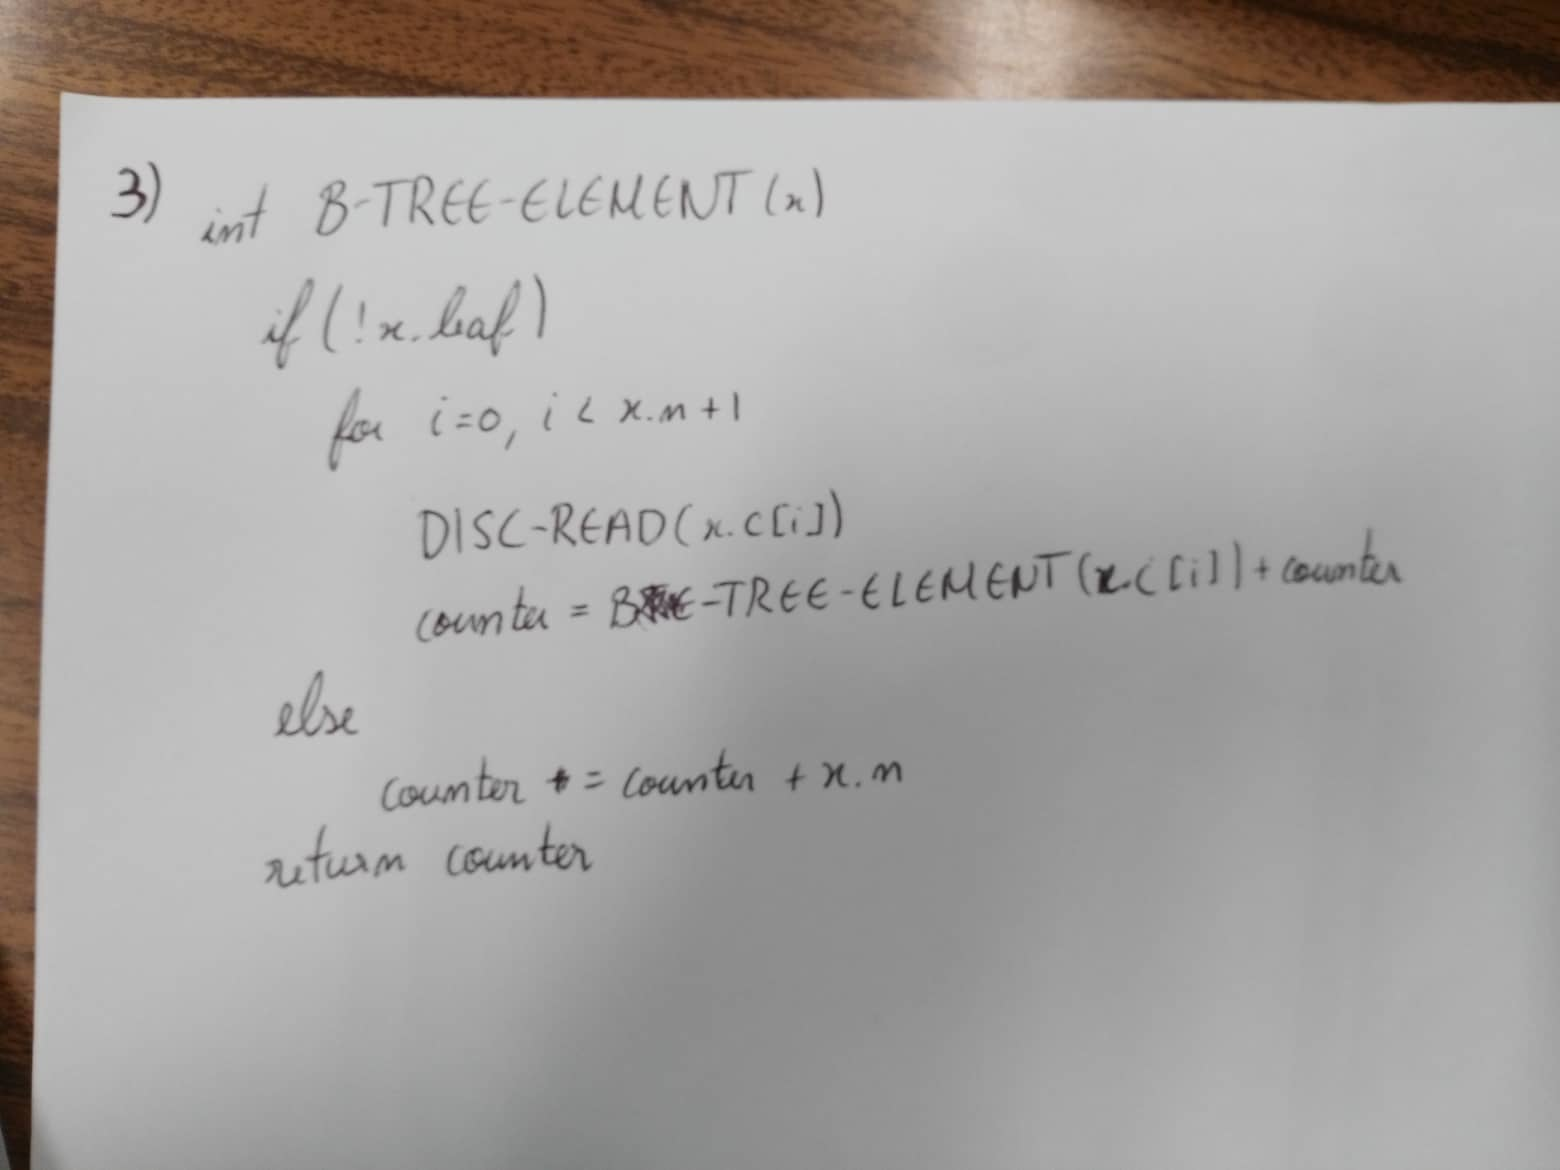 3) int B-TREE-ELEMENT (x)
if (!x.leaf)
for i=0, i < x.n+1
DISC-READ(x.c[i])
counter = B-TREE-ELEMENT(x.c[i]) + counter
else
counter = counter + x.n
return counter